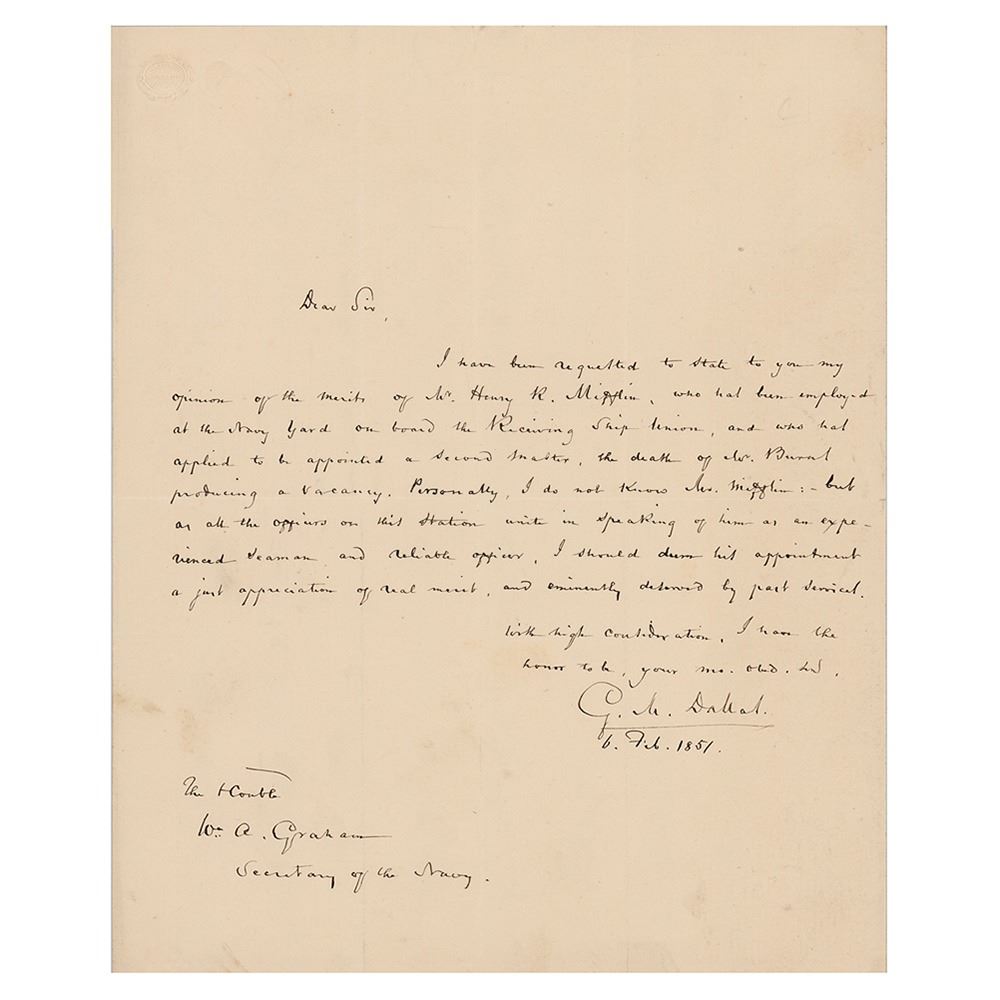 Dear Sir,
I have been requested to state to you my
opinion of the merits of Mr. Henry K. Mifflin, who has been employed
at the Navy Yard on board the Receiving Ship Union, and who has
applied to be appointed a Second Master, the death of Mr.
producing a vacancy. Personally, I do not know Mr. Mifflin: - but
as all the officers on this Station unite in speaking of him as an expe-
rienced Seaman and reliable officer, I should deem his appointment
a just appreciation of real merit, and eminently deserved by past services.
With high consideration, I have the
honor to be, your mo. obed. Ser.
G. M. Dallas.
6. Feb. 1851.
The Honble
Wm A. Graham
Secretary of the Navy.